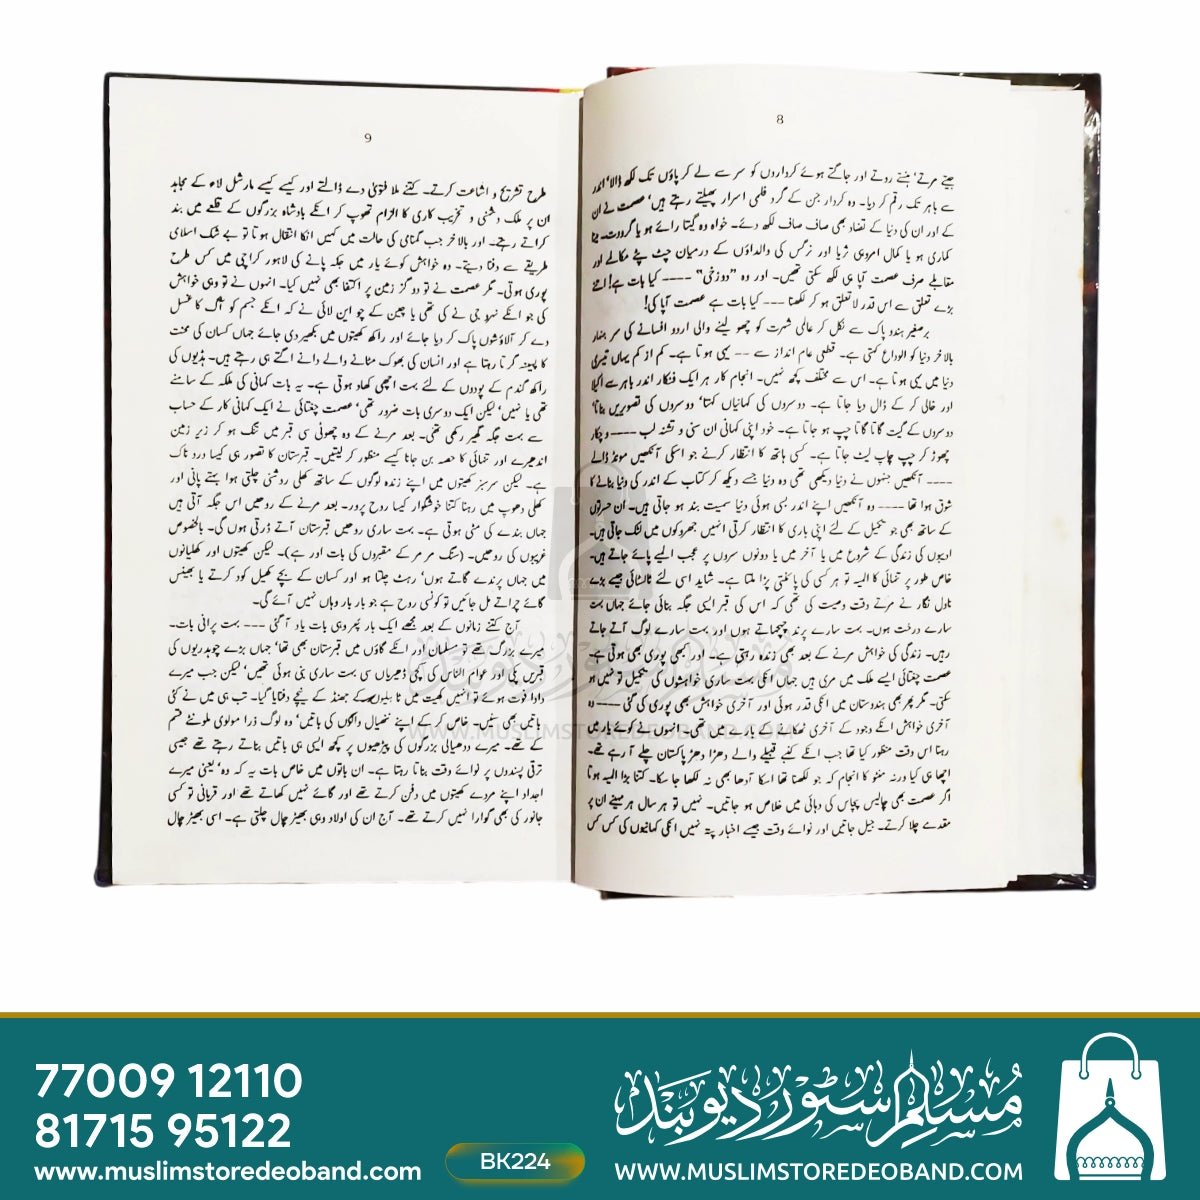 8
جیتے مرتے‘ ہنستے روتے اور جاگتے ہوئے کرداروں کو سر سے لے کر پاؤں تک لکھ ڈالا‘ اندر
سے باہر تک رقم کر دیا۔ وہ کردار جن کے گرد فلمی اسرار پھیلتے رہتے ہیں‘ عصمت نے ان
کے اور ان کی دنیا کے تضاد بھی صاف صاف لکھ دئے۔ خواہ وہ گیتا رائے ہو یا گرودت۔ مینا
کماری ہو یا کمال امروہی ثریا اور نرگس کی والداؤں کے درمیان چٹ پٹے مکالمے اور
مقابلے صرف عصمت آپا ہی لکھ سکتی تھیں۔ اور وہ ”دوزخی“ ---- کیا بات ہے! اتنے
بڑے تعلق سے اس قدر لاتعلق ہو کر لکھنا --- کیا بات ہے عصمت آپا کی!
برصغیر ہندو پاک سے نکل کر عالمی شہرت کو چھو لینے والی اردو افسانے کی سر ہنھار
بالآخر دنیا کو الوداع کہتی ہے۔ قطعی عام انداز سے -- یہی ہوتا ہے۔ کم از کم یہاں تیسری
دنیا میں یہی ہوتا ہے۔ اس سے مختلف کچھ نہیں۔ انجام کار ہر ایک فنکار اندر باہر سے اکیلا
اور خالی کر کے ڈال دیا جاتا ہے۔ دوسروں کی کہانیاں کہتا‘ دوسروں کی تصویریں بناتا‘
دوسروں کے گیت گاتا گاتا چپ ہو جاتا ہے۔ خود اپنی کہانی ان سنی و تشنہ لب ---- و چنگار
چھوڑ کر چپ چاپ لیٹ جاتا ہے۔ کسی ہاتھ کا انتظار کرنے جو اسکی آنکھیں موند ڈالے
---- آنکھیں جنہوں نے دنیا دیکھی تھی وہ دنیا جسے دیکھ کر کتاب کے اندر کی دنیا بنانے کا
شوق ہوا تھا ---- وہ آنکھیں اپنے اندر بسی ہوئی دنیا سمیت بند ہو جاتی ہیں۔ ان حسرتوں
کے ساتھ بھی جو تکمیل کے لئے اپنی باری کا انتظار کرتی انہیں جھروکوں میں لٹک جاتی ہیں۔
ادیبوں کی زندگی کے شروع میں یا آخر میں یا دونوں سروں پر عجب ایسے پائے جاتے ہیں۔
خاص طور پر تنہائی کا المیہ تو ہر کسی کی پائنتی پڑا ملتا ہے۔ شاید اسی لئے ٹالسٹائی جیسے بڑے
ناول نگار نے مرتے وقت وصیت کی تھی کہ اس کی قبر ایسی جگہ بنائی جائے جہاں بہت
سارے درخت ہوں۔ بہت سارے پرند چہچہاتے ہوں اور بہت سارے لوگ آتے جاتے
رہیں۔ زندگی کی خواہش مرنے کے بعد بھی زندہ رہتی ہے۔ اور کبھی پوری بھی ہوتی ہے۔
عصمت چغتائی ایسے ملک میں مری ہیں جہاں انکی بہت ساری خواہشوں کی تکمیل تو نہیں ہو
سکتی۔ مگر پھر بھی ہندوستان میں انکی قدر ہوئی اور آخری خواہش بھی پوری کی گئی ---- وہ
آخری خواہش انکے وجود کے آخری ٹھکانے کے بارے میں تھی۔ انہوں نے کوئے یار میں
رہنا اس وقت منظور کیا تھا جب انکے کنبے قبیلے والے دھڑا دھڑ پاکستان چلے آ رہے تھے۔
اچھا ہی کیا ورنہ منٹو کا انجام کہ جو لکھنا تھا اسکا آدھا بھی نہ لکھا جا سکا۔ کتنا بڑا المیہ ہوتا
اگر عصمت بھی چالیس پچاس کی دہائی میں خلاص ہو جاتیں۔ نہیں تو ہر سال ہر مہینے ان پر
مقدمے چلا کرتے۔ جیل جاتیں اور نوائے وقت جیسے اخبار پتہ نہیں انکی کہانیوں کی کس کس
9
طرح تشریح و اشاعت کرتے۔ کتنے ملا فتویٰ دے ڈالتے اور کیسے کیسے مارشل لاء کے مجاہد
ان پر ملک دشمنی و تخریب کاری کا الزام تھوپ کر انکے بادشاہ بزرگوں کے قلعے میں بند
کراتے رہتے۔ اور بالآخر جب گمنامی کی حالت میں کہیں انکا انتقال ہوتا تو بے شک اسلامی
طریقے سے دفنا دیتے۔ وہ خواہش کوئے یار میں جگہ پانے کی لاہور کراچی میں کس طرح
پوری ہوتی۔ مگر عصمت نے تو دو گز زمین پر اکتفا بھی نہیں کیا۔ انہوں نے تو وہی خواہش
کی جو انکے نہرو جی نے کی تھی یا چین کے چو این لائی نے کہ انکے جسم کو آگ کا غسل
دے کر آلائشوں پاک کر دیا جائے اور راکھ کھیتوں میں بکھیر دی جائے جہاں کسان کی محنت
کا پسینہ گرتا رہتا ہے اور انسان کی بھوک مٹانے والے دانے اگتے ہی رہتے ہیں۔ ہڈیوں کی
راکھ گندم کے پودوں کے لئے بہت اچھی کھاد ہوتی ہے۔ یہ بات کہانی کی ملکہ کے سامنے
تھی یا نہیں‘ لیکن ایک دوسری بات ضرور تھی‘ عصمت چغتائی نے ایک کہانی کار کے حساب
سے بہت جگہ گھیر رکھی تھی۔ بعد مرنے کے وہ چھوٹی سی قبر میں تنگ ہو کر زیر زمین
اندھیرے اور تنہائی کا حصہ بن جانا کیسے منظور کر لیتیں۔ قبرستان کا تصور ہی کیسا درد ناک
ہے۔ لیکن سرسبز کھیتوں میں اپنے زندہ لوگوں کے ساتھ کھلی روشنی چلتی ہوا بہتے پانی اور
کھلی دھوپ میں رہنا کتنا خوشگوار کیسا روح پرور۔ بعد مرنے کے روحیں اس جگہ آتی ہیں
جہاں بندے کی مٹی ہوتی ہے۔ بہت ساری روحیں قبرستان آتے ڈرتی ہوں گی۔ بالخصوص
غریبوں کی روحیں۔ (سنگ مرمر کے مقبروں کی بات اور ہے)۔ لیکن کھیتوں اور کھلیانوں
میں جہاں پرندے گاتے ہوں‘ رہٹ چلتا ہو اور کسان کے بچے کھیل کود کرتے یا بھینس
گائے چراتے مل جائیں تو کونسی روح ہے جو بار بار وہاں نہیں آئے گی۔
آج کتنے زمانوں کے بعد مجھے ایک بار پھر وہی بات یاد آ گئی --- بہت پرانی بات۔
میرے بزرگ تھے تو مسلمان اور انکے گاؤں میں قبرستان بھی تھا‘ جہاں بڑے چوہدریوں کی
قبریں پکی اور عوام الناس کی کچی ڈھیریاں سی بہت ساری بنی ہوئی تھیں‘ لیکن جب میرے
دادا فوت ہوئے تو انہیں کھیت میں ٹاہلیوں کے جھنڈ کے نیچے دفنایا گیا۔ تب ہی میں نے کئی
باتیں بھی سنیں۔ خاص کر کے اپنے ننھیال والوں کی باتیں‘ وہ لوگ ذرا مولوی ملونٹے قسم
کے تھے۔ میرے ددھیالی بزرگوں کی پیڑھیوں پر کچھ ایسی ہی باتیں بناتے رہتے تھے جیسی
ترقی پسندوں پر نوائے وقت بناتا رہتا ہے۔ ان باتوں میں خاص بات یہ کہ وہ‘ یعنی میرے
اجداد اپنے مردے کھیتوں میں دفن کرتے تھے اور گائے نہیں کھاتے تھے اور قربانی تو کسی
جانور کی بھی گوارا نہیں کرتے تھے۔ آج ان کی اولاد وہی بھیڑ چال چلتی ہے۔ اسی بھیڑ چال
مسلم سٹور دیوبند
WWW.MUSLIMSTOREDEOBAND.COM
77009 12110
81715 95122
www.muslimstoredeoband.com
BK224
مسلم سٹور دیوبند
WWW.MUSLIMSTOREDEOBAND.COM